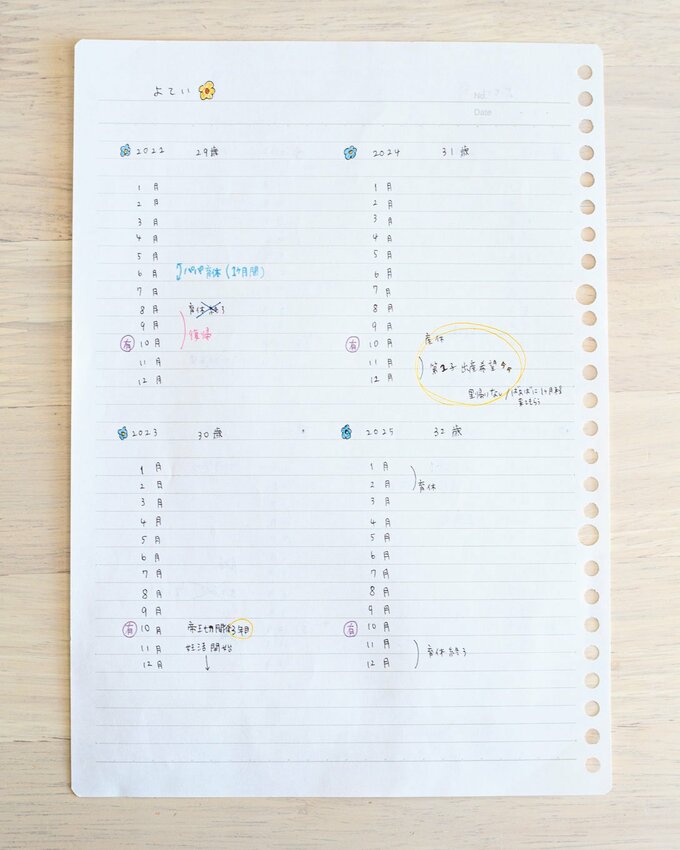 よてい
No.
Date
2022 29歳
1月
2月
3月
4月
5月
6月 パパ育休(1ヶ月間)
7月
8月 育休終了
9月
復帰
有 10月
11月
12月
2024 31歳
1月
2月
3月
4月
5月
6月
7月
8月
9月
有 10月 産休
11月 第2子出産希望
12月
里帰りなし/ばぁばに1ヶ月程
来てもらう
2023 30歳
1月
2月
3月
4月
5月
6月
7月
8月
9月
有 10月 帝王切開後3年目
11月 妊活開始
12月 ↓
2025 32歳
1月
2月 育休
3月
4月
5月
6月
7月
8月
9月
有 10月
11月 育休終了
12月